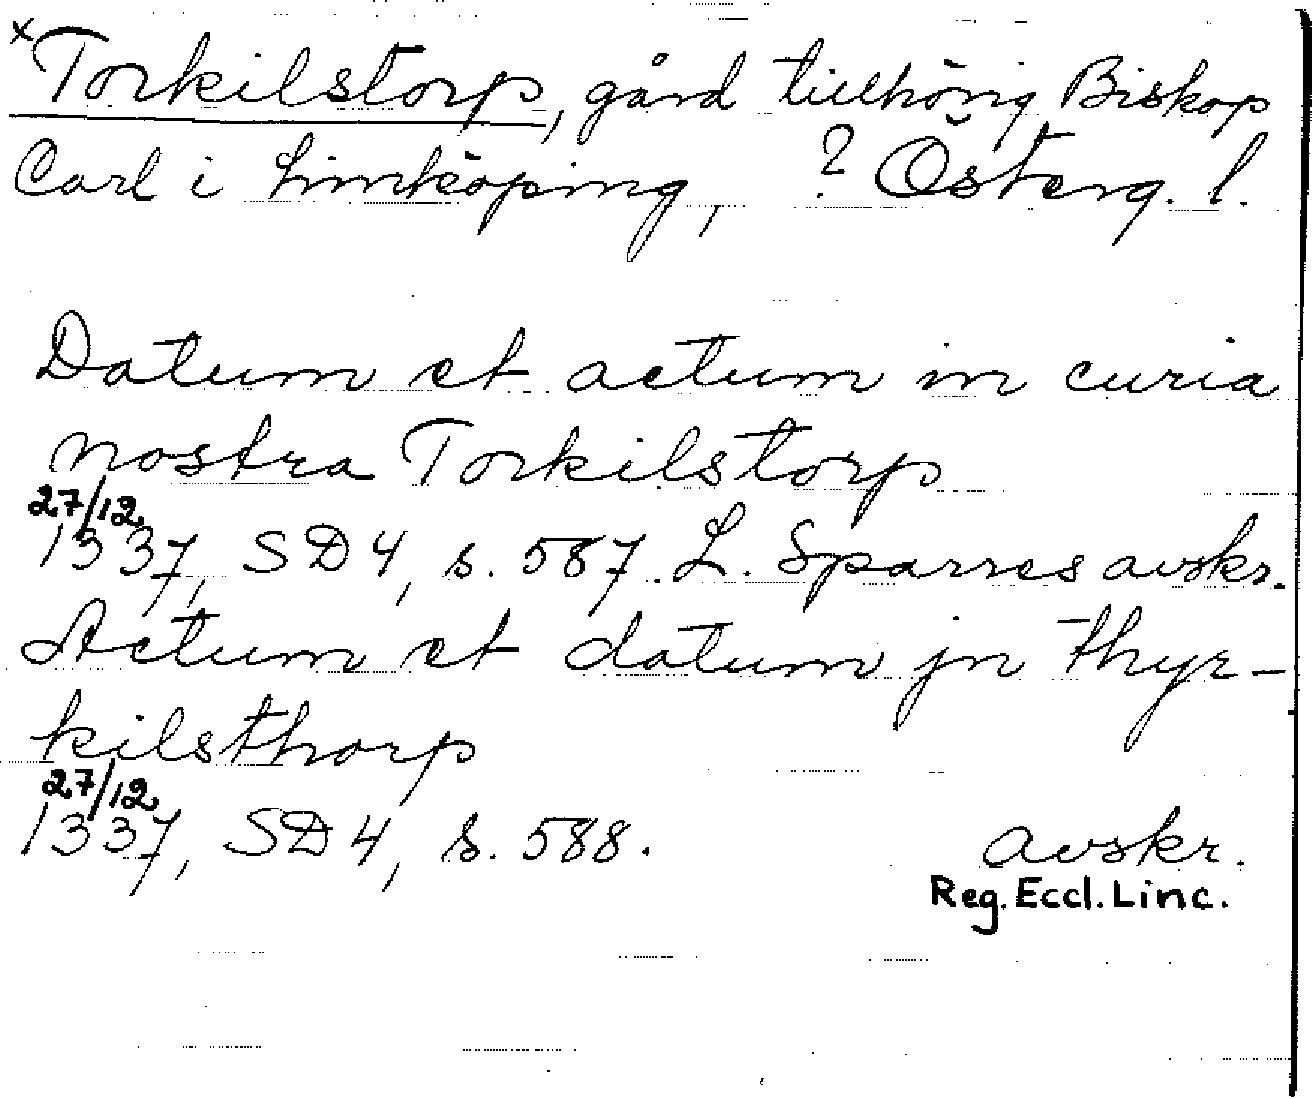 x Torkilstorp, gård tillhörig Biskop
Carl i Linköping, ? Österg. l.
Datum et actum in curia
nostra Torkilstorp
27/12
1337, SD4, s. 587. L. Sparres avskr.
Actum et datum jn Thyr-
kilsthorp
27/12
1337, SD4, s. 588. avskr.
Reg. Eccl. Linc.